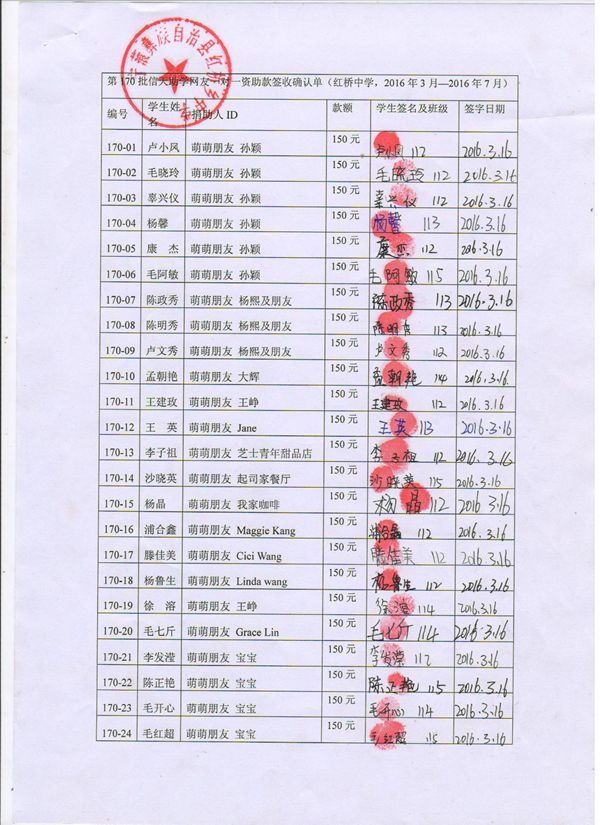 宁蒗彝族自治县红桥乡中学
第 170 批信天助学网友一对一资助款签收确认单（红桥中学，2016 年 3 月—2016 年 7 月）
编号 学生姓名 捐助人 ID 款额 学生签名及班级 签字日期
170-01 卢小风 萌萌朋友 孙颖 150 元 卢小风 112 2016.3.16
170-02 毛晓玲 萌萌朋友 孙颖 150 元 毛晓玲 112 2016.3.16
170-03 辜兴仪 萌萌朋友 孙颖 150 元 辜兴仪 112 2016.3.16
170-04 杨馨 萌萌朋友 孙颖 150 元 杨馨 113 2016.3.16
170-05 康 杰 萌萌朋友 孙颖 150 元 康杰 112 2016.3.16
170-06 毛阿敏 萌萌朋友 孙颖 150 元 毛阿敏 115 2016.3.16
170-07 陈政秀 萌萌朋友 杨熙及朋友 150 元 陈政秀 113 2016.3.16
170-08 陈明秀 萌萌朋友 杨熙及朋友 150 元 陈明秀 113 2016.3.16
170-09 卢文秀 萌萌朋友 杨熙及朋友 150 元 卢文秀 112 2016.3.16
170-10 孟朝艳 萌萌朋友 大辉 150 元 孟朝艳 114 2016.3.16
170-11 王建玫 萌萌朋友 王峥 150 元 王建玫 112 2016.3.16
170-12 王 英 萌萌朋友 Jane 150 元 王英 113 2016.3.16
170-13 李子祖 萌萌朋友 芝士青年甜品店 150 元 李子祖 112 2016.3.16
170-14 沙晓英 萌萌朋友 起司家餐厅 150 元 沙晓英 115 2016.3.16
170-15 杨晶 萌萌朋友 我家咖啡 150 元 杨晶 112 2016.3.16
170-16 浦合鑫 萌萌朋友 Maggie Kang 150 元 浦合鑫 112 2016.3.16
170-17 滕佳美 萌萌朋友 Cici Wang 150 元 滕佳美 112 2016.3.16
170-18 杨鲁生 萌萌朋友 Linda wang 150 元 杨鲁生 112 2016.3.16
170-19 徐 溶 萌萌朋友 王峥 150 元 徐溶 114 2016.3.16
170-20 毛七斤 萌萌朋友 Grace Lin 150 元 毛七斤 114 2016.3.16
170-21 李发滢 萌萌朋友 宝宝 150 元 李发滢 112 2016.3.16
170-22 陈正艳 萌萌朋友 宝宝 150 元 陈正艳 115 2016.3.16
170-23 毛开心 萌萌朋友 宝宝 150 元 毛开心 114 2016.3.16
170-24 毛红超 萌萌朋友 宝宝 150 元 毛红超 115 2016.3.16